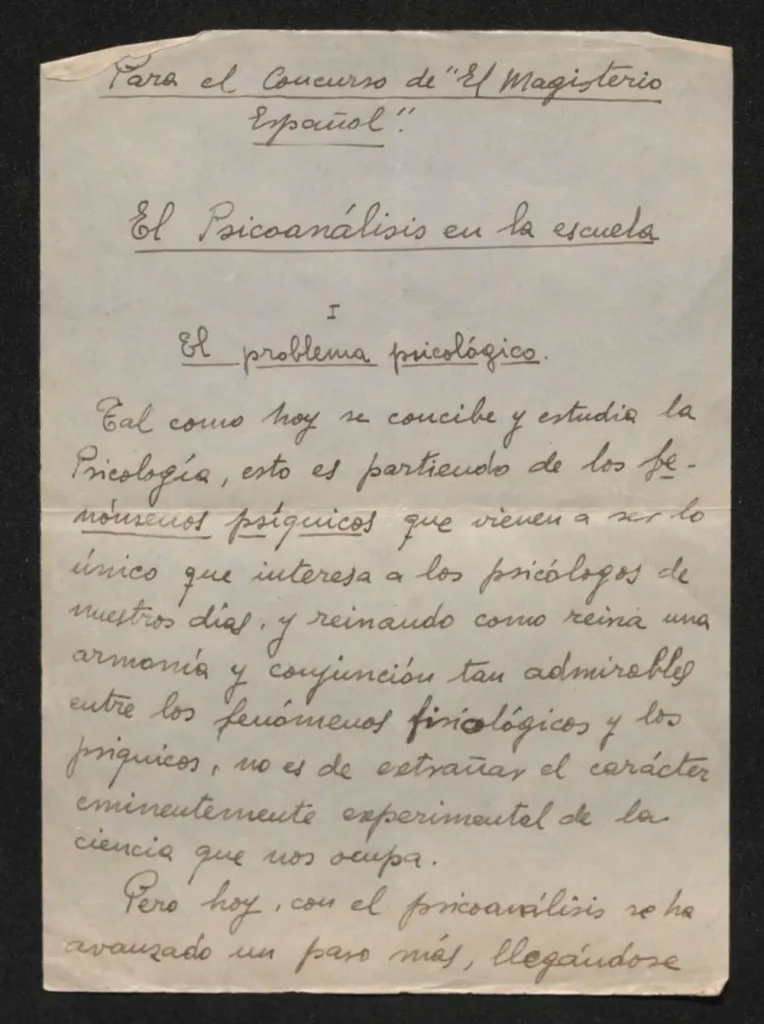 Para el Concurso de "El Magisterio
Español".
El Psicoanálisis en la escuela
I
El problema psicológico.
Tal como hoy se concibe y estudia la
Psicología, esto es partiendo de los fe-
nómenos psíquicos que vienen a ser lo
único que interesa a los psicólogos de
nuestros días, y reinando como reina una
armonía y conjunción tan admirables
entre los fenómenos fisiológicos y los
psíquicos, no es de extrañar el carácter
eminentemente experimental de la
ciencia que nos ocupa.
Pero hoy, con el psicoanálisis se ha
avanzado un paso más, llegándose